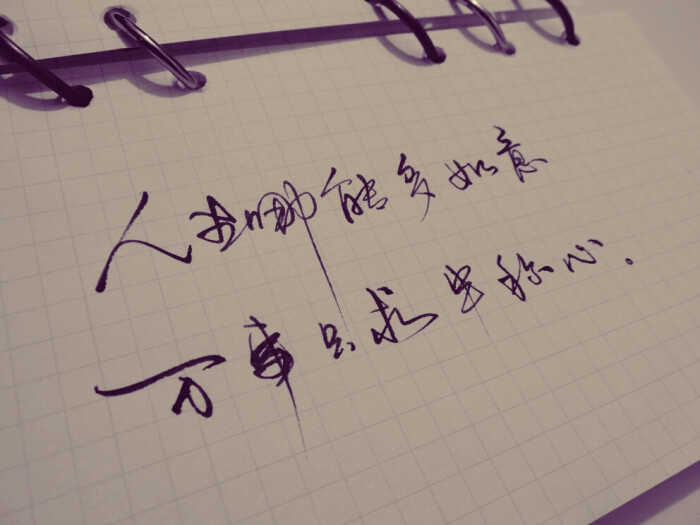 人生哪能多如意
万事只求半称心。